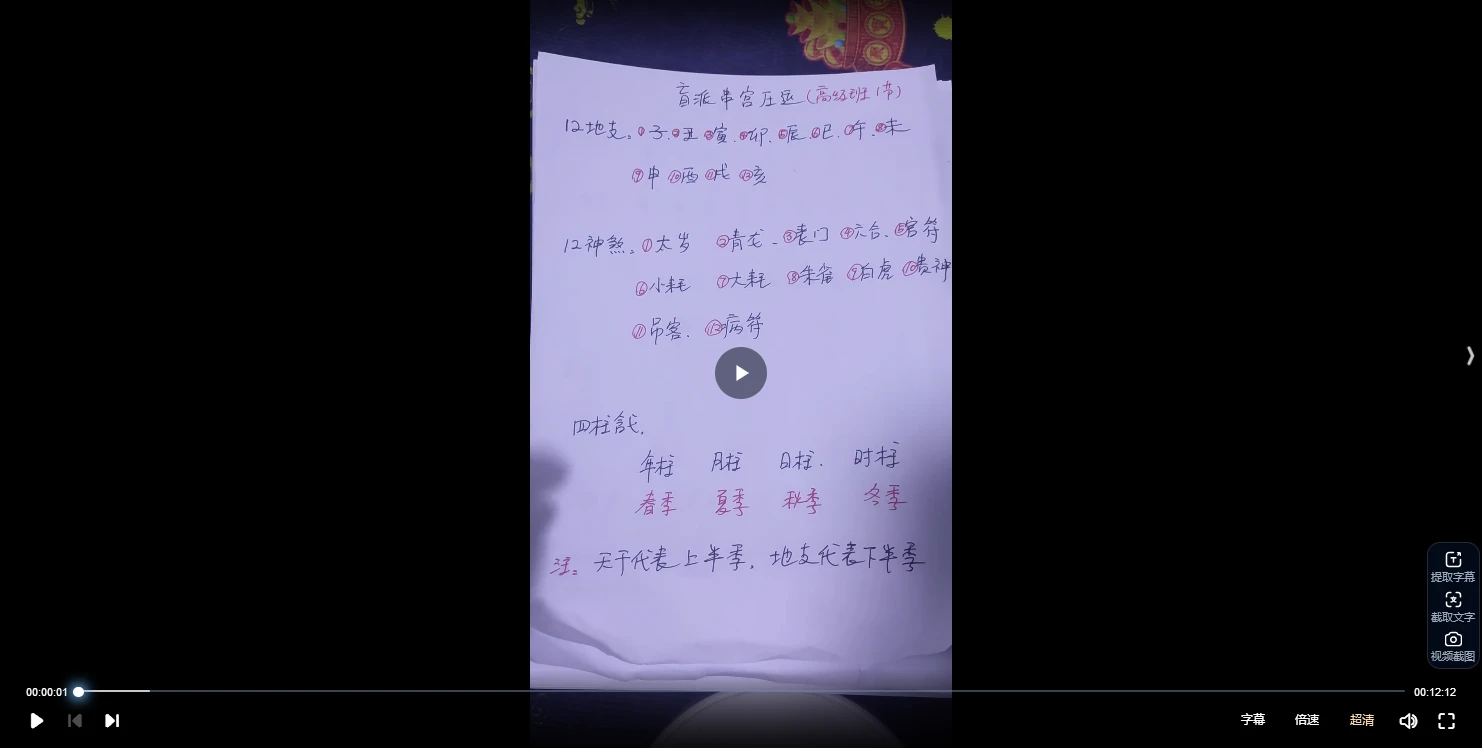 盲派串宫压运(高级班1节)
12地支。①子.②丑③寅.④卯.⑤辰.⑥巳.⑦午.⑧未
⑨申⑩酉⑪戌⑫亥
12神煞。①太岁 ②青龙.③丧门④六合.⑤官符
⑥小耗 ⑦大耗 ⑧朱雀⑨白虎⑩贵神
⑪吊客.⑫病符
四柱含弍.
年柱 月柱 日柱. 时柱
春季 夏季 秋季 冬季
注。天干代表上半季,地支代表下半季
提取字幕
截取文字
视频截图
00:00:01
00:12:12
字幕 倍速 超清